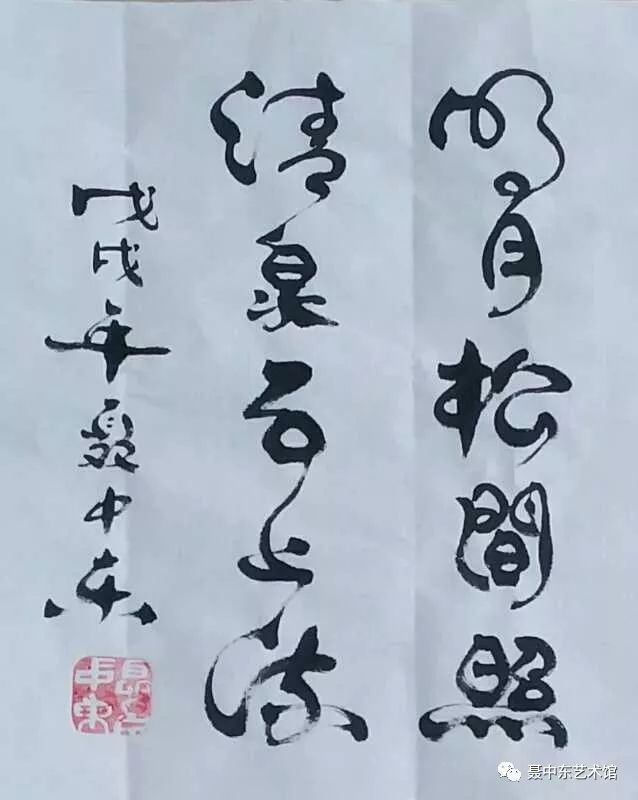 明月松間照
清泉石上流
戊戌年聂中东
聂中东
聂中东艺术馆